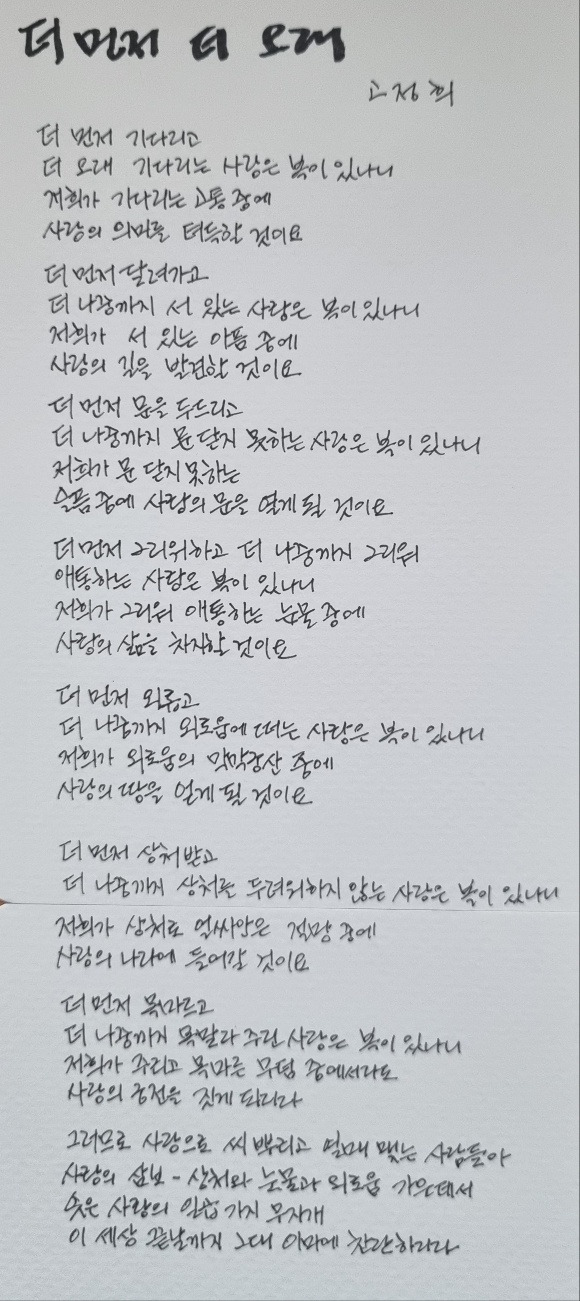 더 먼저 더 오래
고정희
더 먼저 기다리고
더 오래 기다리는 사랑은 복이 있나니
저희가 기다리는 고통 중에
사랑의 의미를 터득할 것이요
더 먼저 달려가고
더 나중까지 서 있는 사랑은 복이 있나니
저희가 서 있는 아픔 중에
사랑의 길을 발견할 것이요
더 먼저 문을 두드리고
더 나중까지 문 닫지 못하는 사랑은 복이 있나니
저희가 문 닫지 못하는
슬픔 중에 사랑의 문을 열게 될 것이요
더 먼저 그리워하고 더 나중까지 그리워
애통하는 사랑은 복이 있나니
저희가 그리워 애통하는 눈물 중에
사랑의 삶을 차지할 것이요
더 먼저 외롭고
더 나중까지 외로움에 떠는 사랑은 복이 있나니
저희가 외로움의 막막강산 중에
사랑의 땅을 얻게 될 것이요
더 먼저 상처받고
더 나중까지 상처를 두려워하지 않는 사랑은 복이 있나니
저희가 상처로 얼싸안은 절망 중에
사랑의 나라에 들어갈 것이요
더 먼저 목마르고
더 나중까지 목말라 주린 사랑은 복이 있나니
저희가 주리고 목마른 무덤 중에서라도
사랑의 궁전을 짓게 되리라
그러므로 사랑으로 씨 뿌리고 열매 맺는 사람들아
사랑의 삼보 - 상처와 눈물과 외로움 가운데서
솟은 사랑의 일곱 가지 무지개
이 세상 끝날까지 그대 이마에 찬란하리라